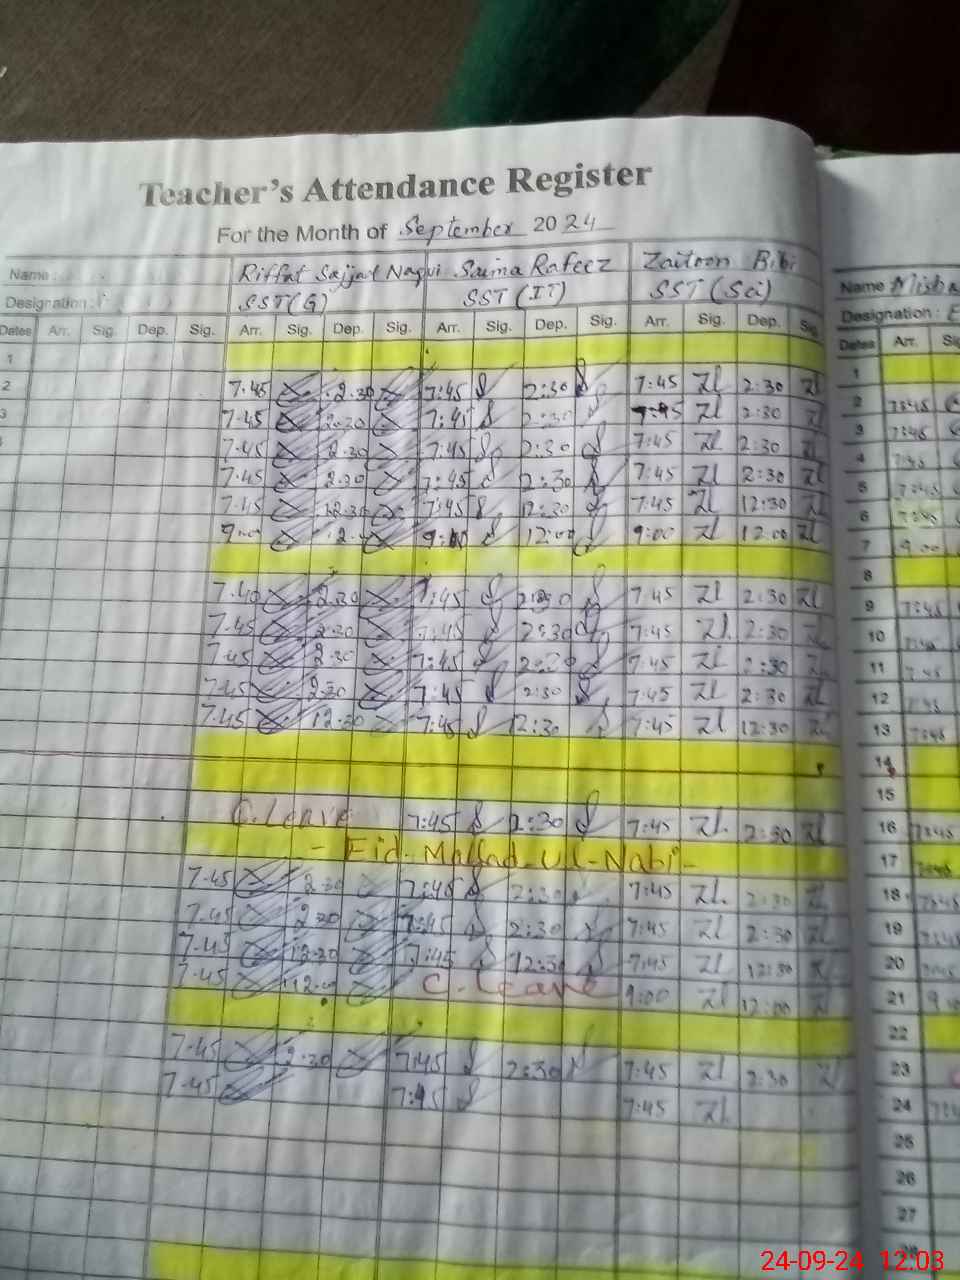 Teacher's Attendance Register
For the Month of September 2024
Name : Riffat Sajjad Naqvi Saima Rafeez Zaitoon Bibi Name
Designation : SST(G) SST(IT) SST(Sci) Designation :
Dates Arr. Sig. Dep. Sig. Arr. Sig. Dep. Sig. Arr. Sig. Dep. Sig. Arr. Sig. Dep. Dates Arr.
1 1
2 7.45 2.30 7:45 2:30 7:45 Zl 2:30 Zl 2 7:45
3 7.45 2.30 7:45 2:30 7:45 Zl 2:30 Zl 3 7:45
7.45 2.30 7:45 2:30 7:45 Zl 2:30 Zl 4 7:45
7.45 2.30 7:45 2:30 7:45 Zl 2:30 Zl 5 7:45
7.45 12.30 7:45 12:30 7:45 Zl 12:30 Zl 6 7:45
9:00 12:00 9:00 Zl 12:00 Zl 7 9.00
8
2.30 7:45 7:45 Zl 2:30 Zl 9 7:45
7.45 2.30 7:45 2:30 7:45 Zl. 2:30 10
7.45 2.30 7:45 7:45 Zl 2:30 11 7:45
7.45 2.30 7:45 2:30 7:45 Zl 2:30 12 7:45
7.45 12.30 7:45 12:30 7:45 Zl 12:30 Zl 13 7:45
14
15
C.Leave 7:45 2:30 7:45 Zl. 2:30 Zl 16 7:45
17
7.45 2.30 7:45 2:30 7:45 Zl. 2:30 18
7.45 7:45 2:30 7:45 Zl 2:30 Zl 19
7.45 7:45 12:30 7:45 Zl 12:30 Zl 20
7.45 C.Leave 9:00 Zl 12:00 Zl 21
22
7.45 2.30 7:45 2:30 7:45 Zl 2:30 Zl 23
7.45 7:45 7:45 Zl 24
25
26
27
28
24-09-24 12:03